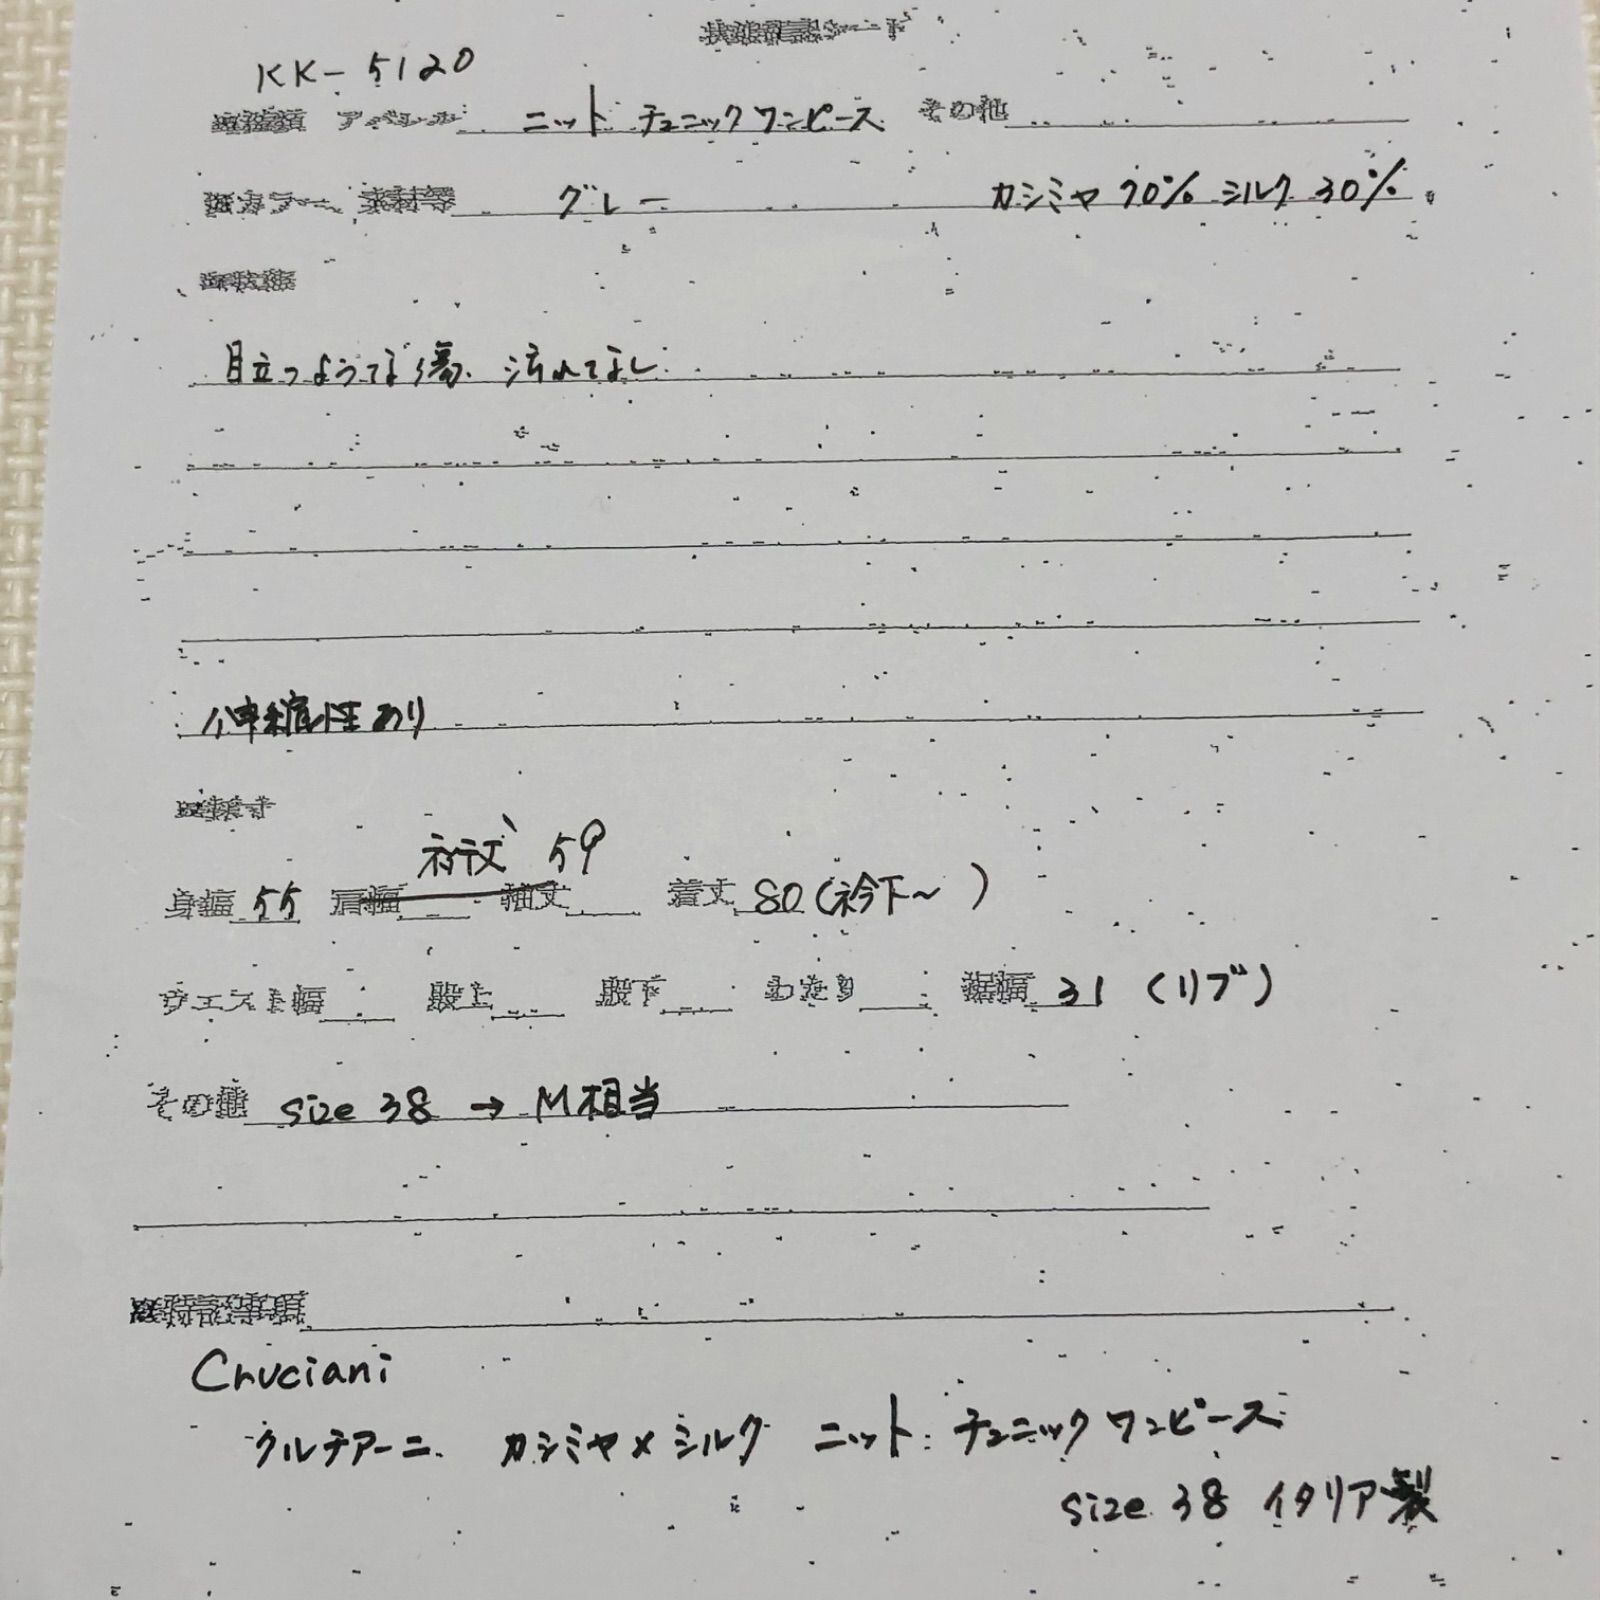 状態確認シート
KK-5120
■種類 アパレル ニット チュニックワンピース その他
■カラー、素材等 グレー カシミヤ70% シルク30%
■状態
目立つような傷、汚れてなし
伸縮性あり
■採寸
裄丈 59
身幅 55 肩幅 袖丈 着丈 80(衿下~ )
ウエスト幅 股上 股下 わたり 裾幅 31 (リブ)
その他 size 38 → M相当
■特記事項
Cruciani
クルチアーニ カシミヤ×シルク ニット チュニックワンピース
size 38 イタリア製